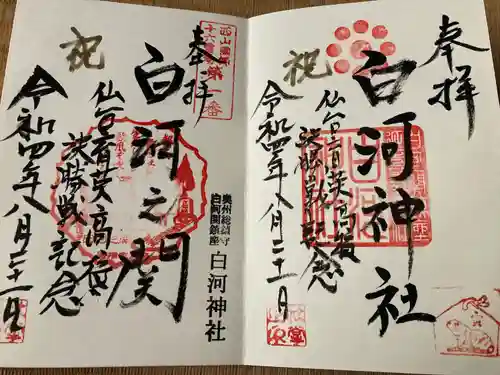 奉拝
白河神社
祝
仙台育英高校
決勝戦記念
令和四年八月二十一日
奉拝
第一番
白河之関
奥州総鎮守
白河関鎮座
白河神社
祝
仙台育英高校
決勝戦記念
令和四年八月二十一日